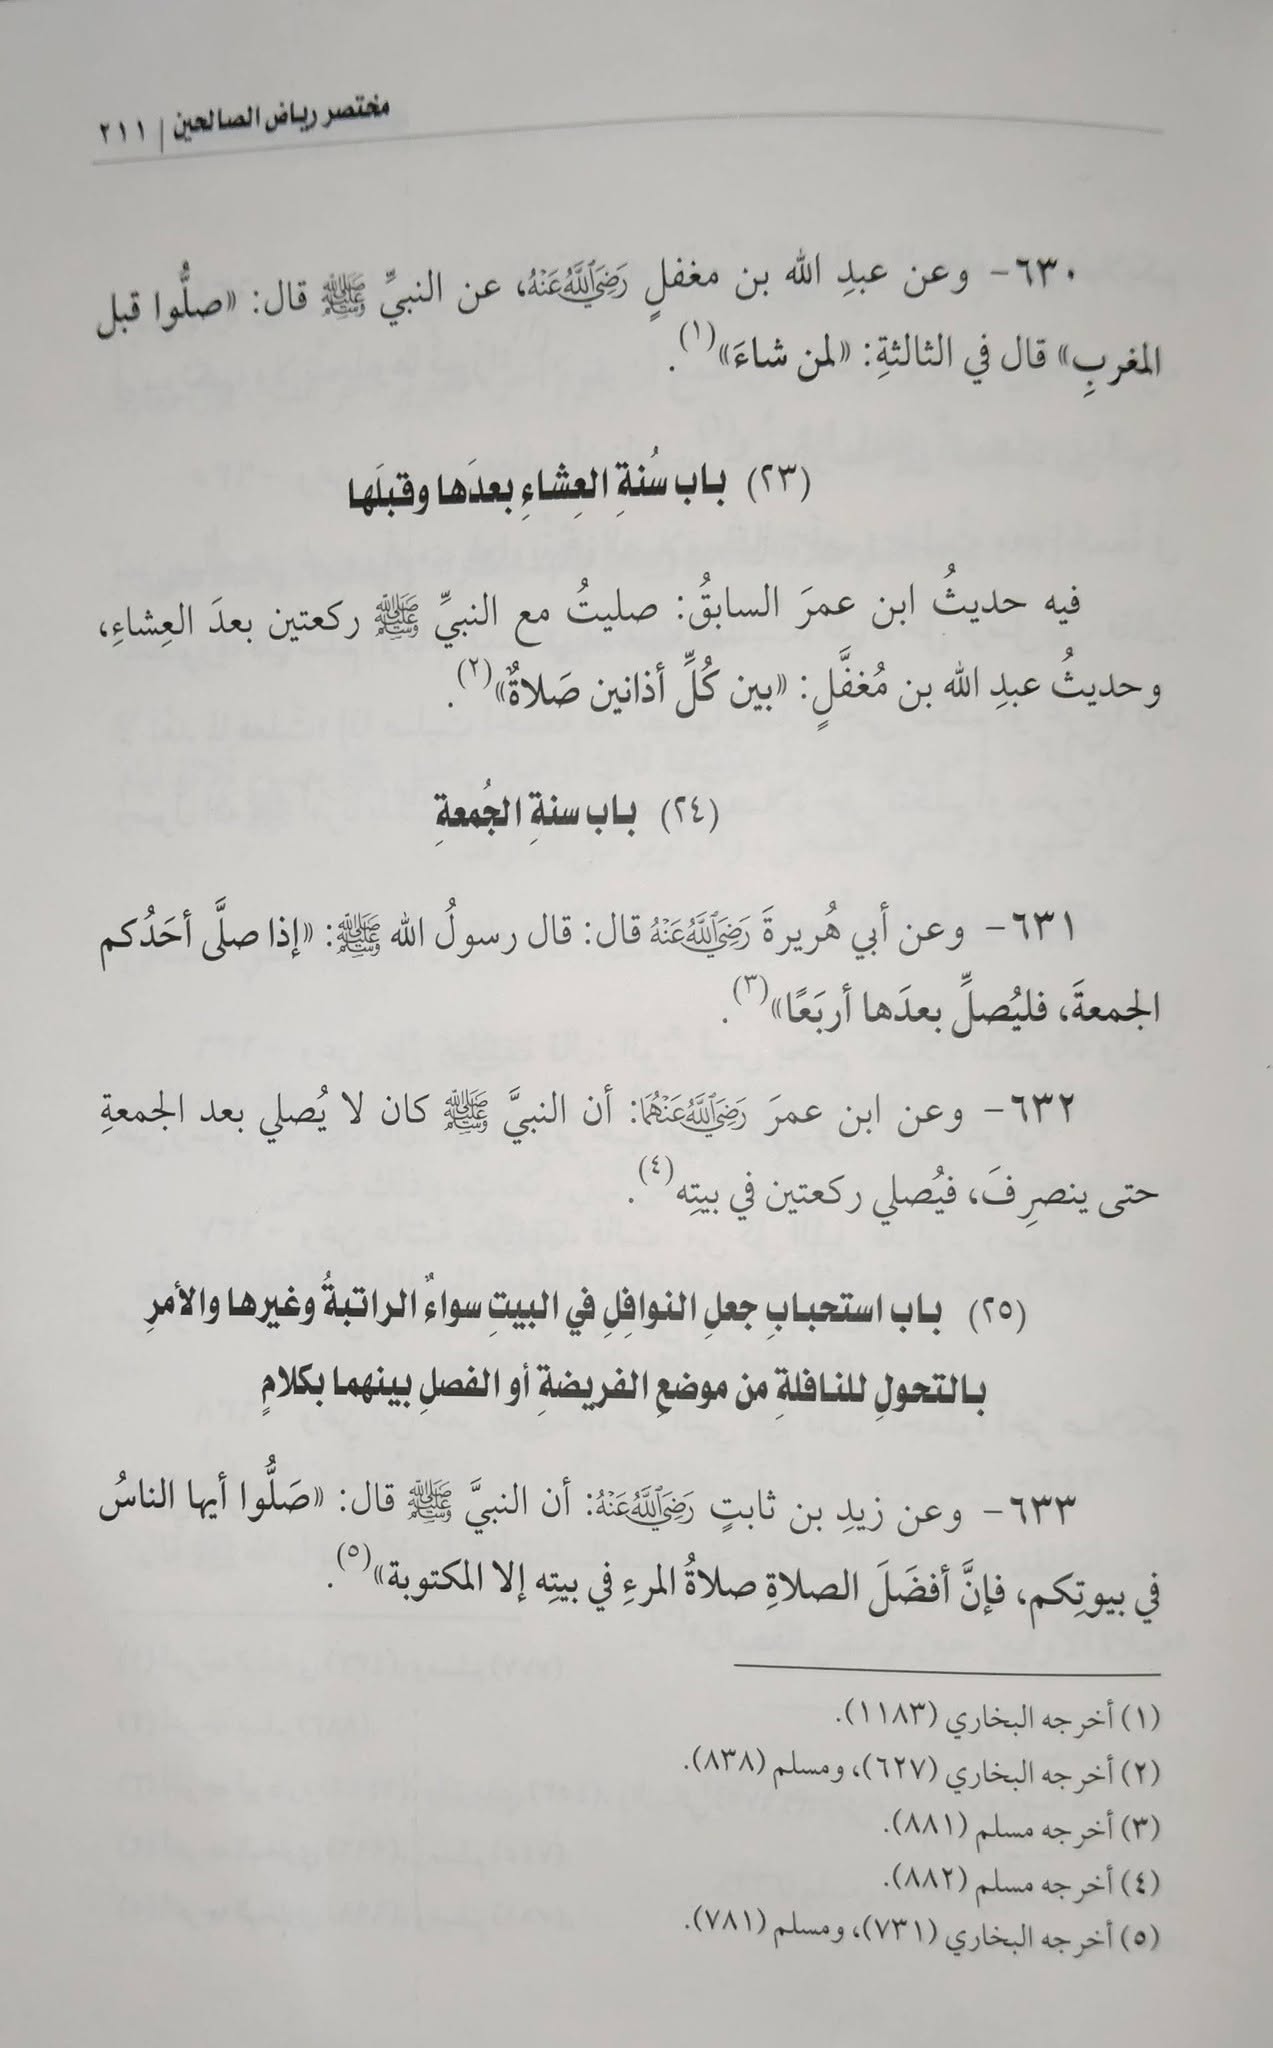 مختصر رياض الصالحين | ٢١١
٦٣٠- وعن عبدِ الله بن مغفلٍ رَضِيَ اللَّهُ عَنْهُ، عن النبيِّ ﷺ قال: «صلُّوا قبل
المغربِ» قال في الثالثةِ: «لمن شاءَ»(١).
(٢٣) باب سُنةِ العِشاءِ بعدَها وقبلَها
فيه حديثُ ابن عمرَ السابقُ: صليتُ مع النبيِّ ﷺ ركعتين بعدَ العِشاءِ،
وحديثُ عبدِ الله بن مُغفَّلٍ: «بين كُلِّ أذانين صَلاةٌ»(٢).
(٢٤) باب سنةِ الجُمعةِ
٦٣١- وعن أبي هُريرةَ رَضِيَ اللَّهُ عَنْهُ قال: قال رسولُ الله ﷺ: «إذا صلَّى أحَدُكم
الجمعةَ، فليُصلِّ بعدَها أربَعًا»(٣).
٦٣٢- وعن ابن عمرَ رَضِيَ اللَّهُ عَنْهُمَا: أن النبيَّ ﷺ كان لا يُصلي بعد الجمعةِ
حتى ينصرِفَ، فيُصلي ركعتين في بيتِه(٤).
(٢٥) باب استحبابِ جعلِ النوافِلِ في البيتِ سواءٌ الراتبةُ وغيرها والأمرِ
بالتحولِ للنافلةِ من موضعِ الفريضةِ أو الفصلِ بينهما بكلامٍ
٦٣٣- وعن زيدِ بن ثابتٍ رَضِيَ اللَّهُ عَنْهُ: أن النبيَّ ﷺ قال: «صَلُّوا أيها الناسُ
في بيوتِكم، فإنَّ أفضَلَ الصلاةِ صلاةُ المرءِ في بيتِه إلا المكتوبة»(٥).
(١) أخرجه البخاري (١١٨٣).
(٢) أخرجه البخاري (٦٢٧)، ومسلم (٨٣٨).
(٣) أخرجه مسلم (٨٨١).
(٤) أخرجه مسلم (٨٨٢).
(٥) أخرجه البخاري (٧٣١)، ومسلم (٧٨١).